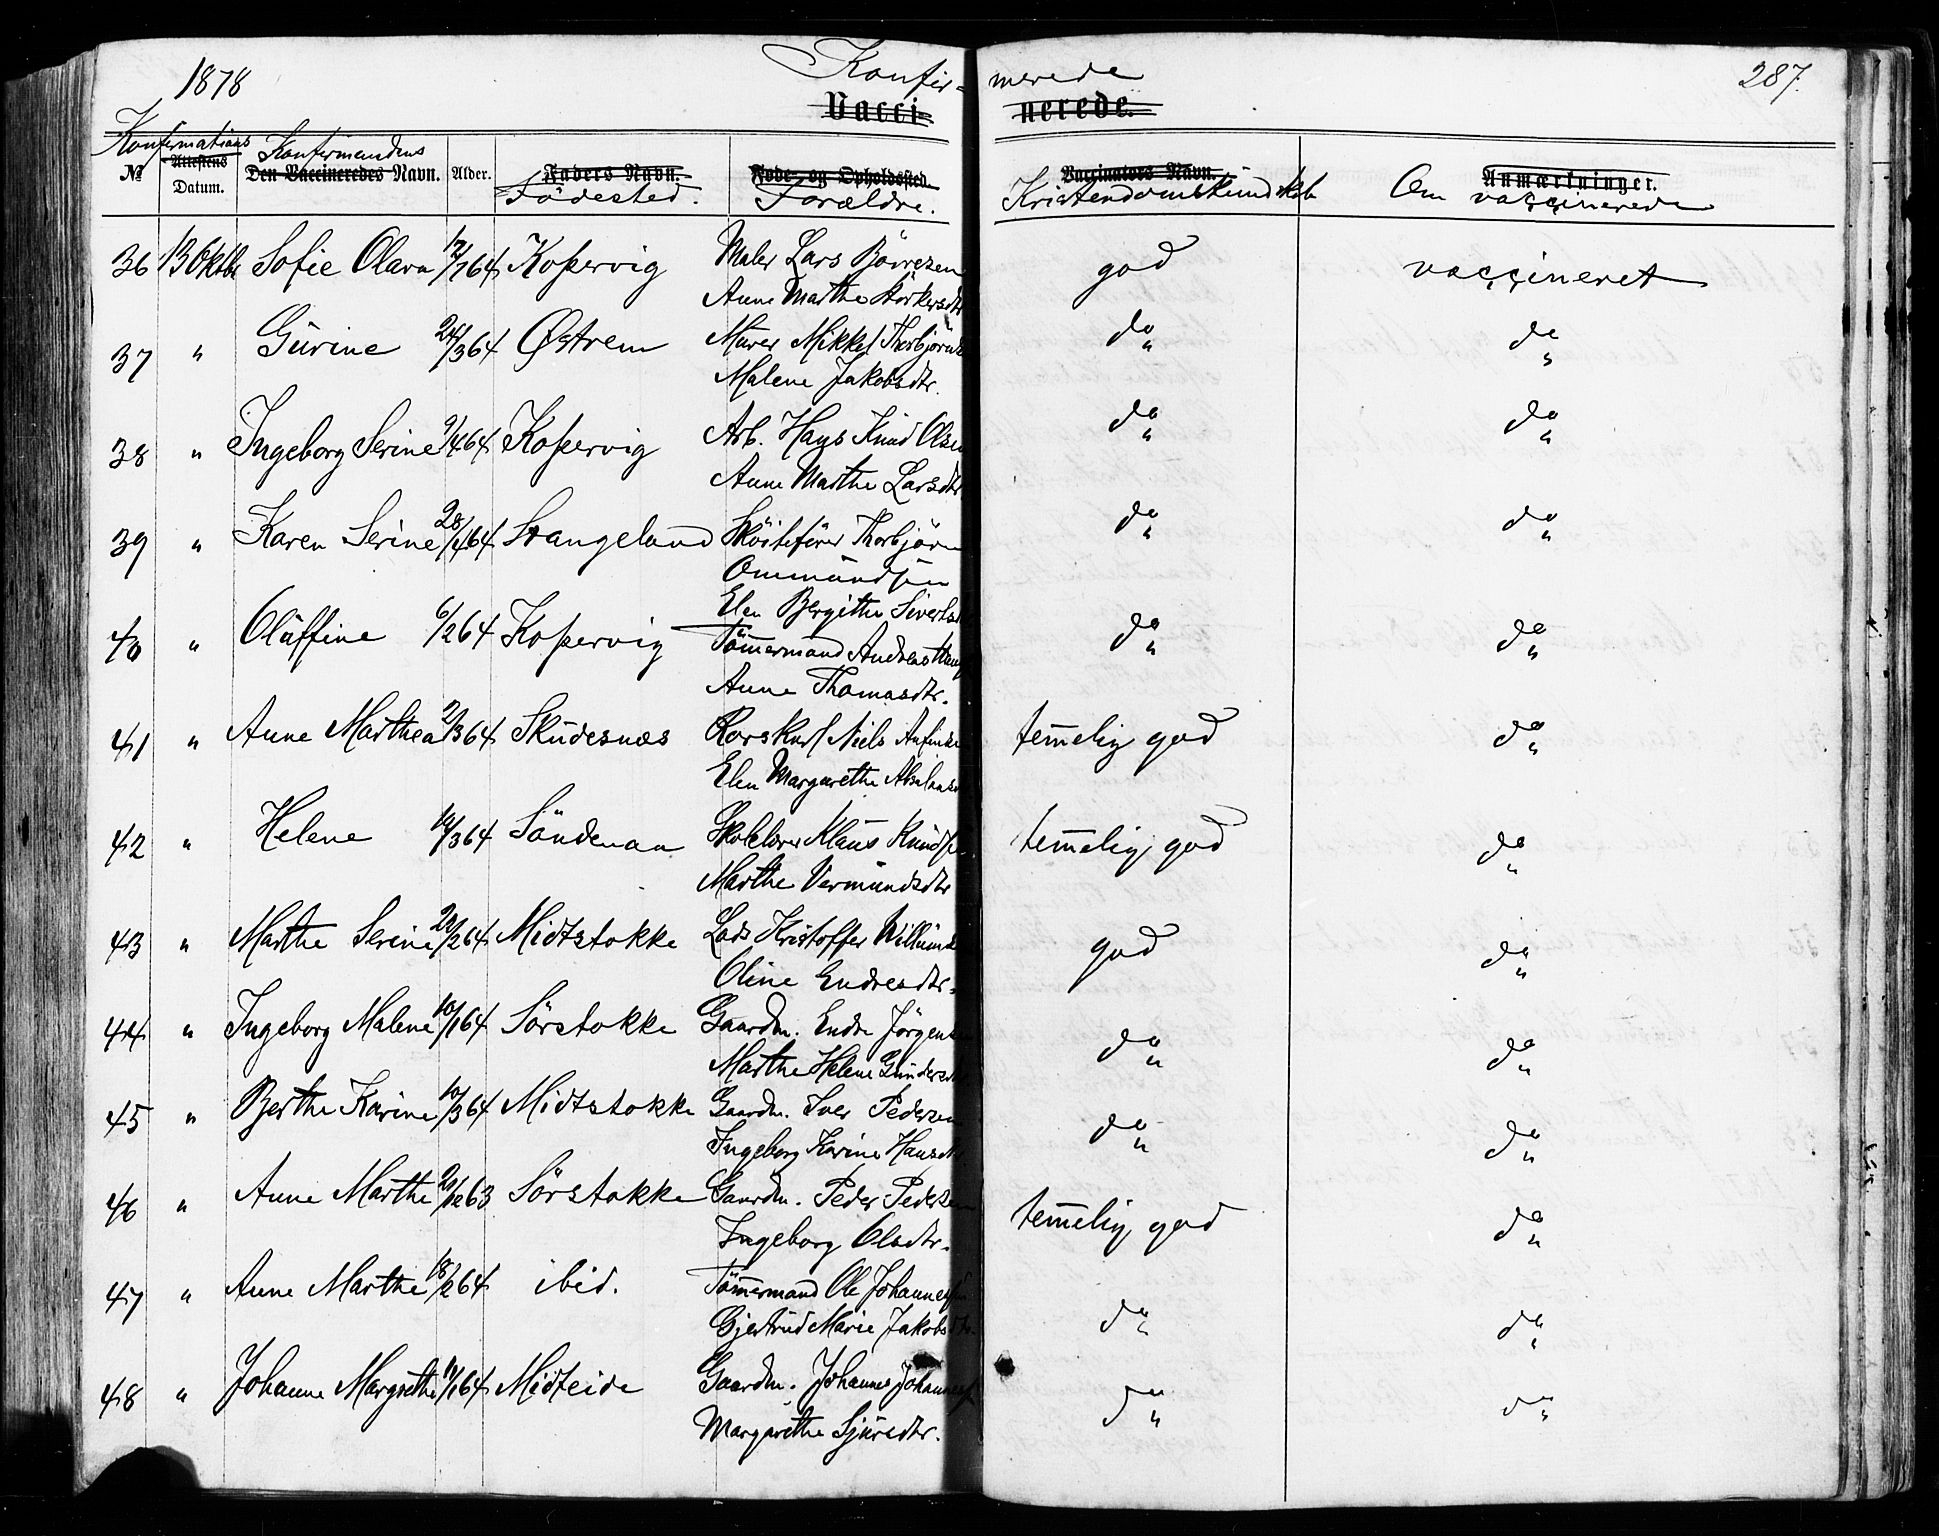 1878 Konfir- merede 287.
Vacci- nerede.
Konfirmations Konfirmandens
№ Attestens Datum. Den Vaccineredes Navn. Alder. Faders Navn. Føde- og Opholdssted. Vaccinators Navn. Anmærkninger.
Födested. Forældre. Kristendomskundskab Om vaccinerede
36 13 Oktbr Sofie Olava 64 Kopervig Maler Lars Börresen god vaccineret
Anne Marthe
37 " Gurine 24/3 64 Østrem Murer Mikkel Thorbjörns do do
Malene Jakobsdtr.
38 " Ingeborg Serine 9/4 64 Kopervig Arb. Hans Knud Olsen do do
Anne Marthe Larsdtr
39 " Karen Serine 28/4 64 Stangeland Thorbjörn do do
Ommundsen
Elen Bergithe Sivertsd
40 " Olaffine 6/2 64 Kopervig Tömmermand Andreas do do
Anne Thomasdtr.
41 " Anne Marthea 2/3 64 Skudesnæs Niels temmelig god do
Elen Margarethe
42 " Helene 64 Söndenaa Skolelærer Klaus Knuds temmelig god do
Marthe Vermundsdtr
43 " Marthe Serine 64 Midtstokke Lods Kristoffer Willums god do
Oline Endresdtr.
44 " Ingeborg Malene 10/1 64 Sörstokke Gaardm. Endre Jörgens do do
Marthe Helene Gundersd
45 " Berthe Karine 10/3 64 Midtstokke Gaardm. Iver Pedersen do do
Ingeborg Karine Hansdtr
46 " Anne Marthe 12 63 Sörstokke Gaardm. Peder Pedersen temmelig god do
Ingeborg Olsdtr.
47 " Anne Marthe 18/2 64 ibid. Tömmermand Ole Johannessen do do
Gjertrud Marie Jakobsdtr
48 " Johanne Margrethe 64 Midteide Gaardm. Johannes Johannes do do
Margarethe Sjursdtr.